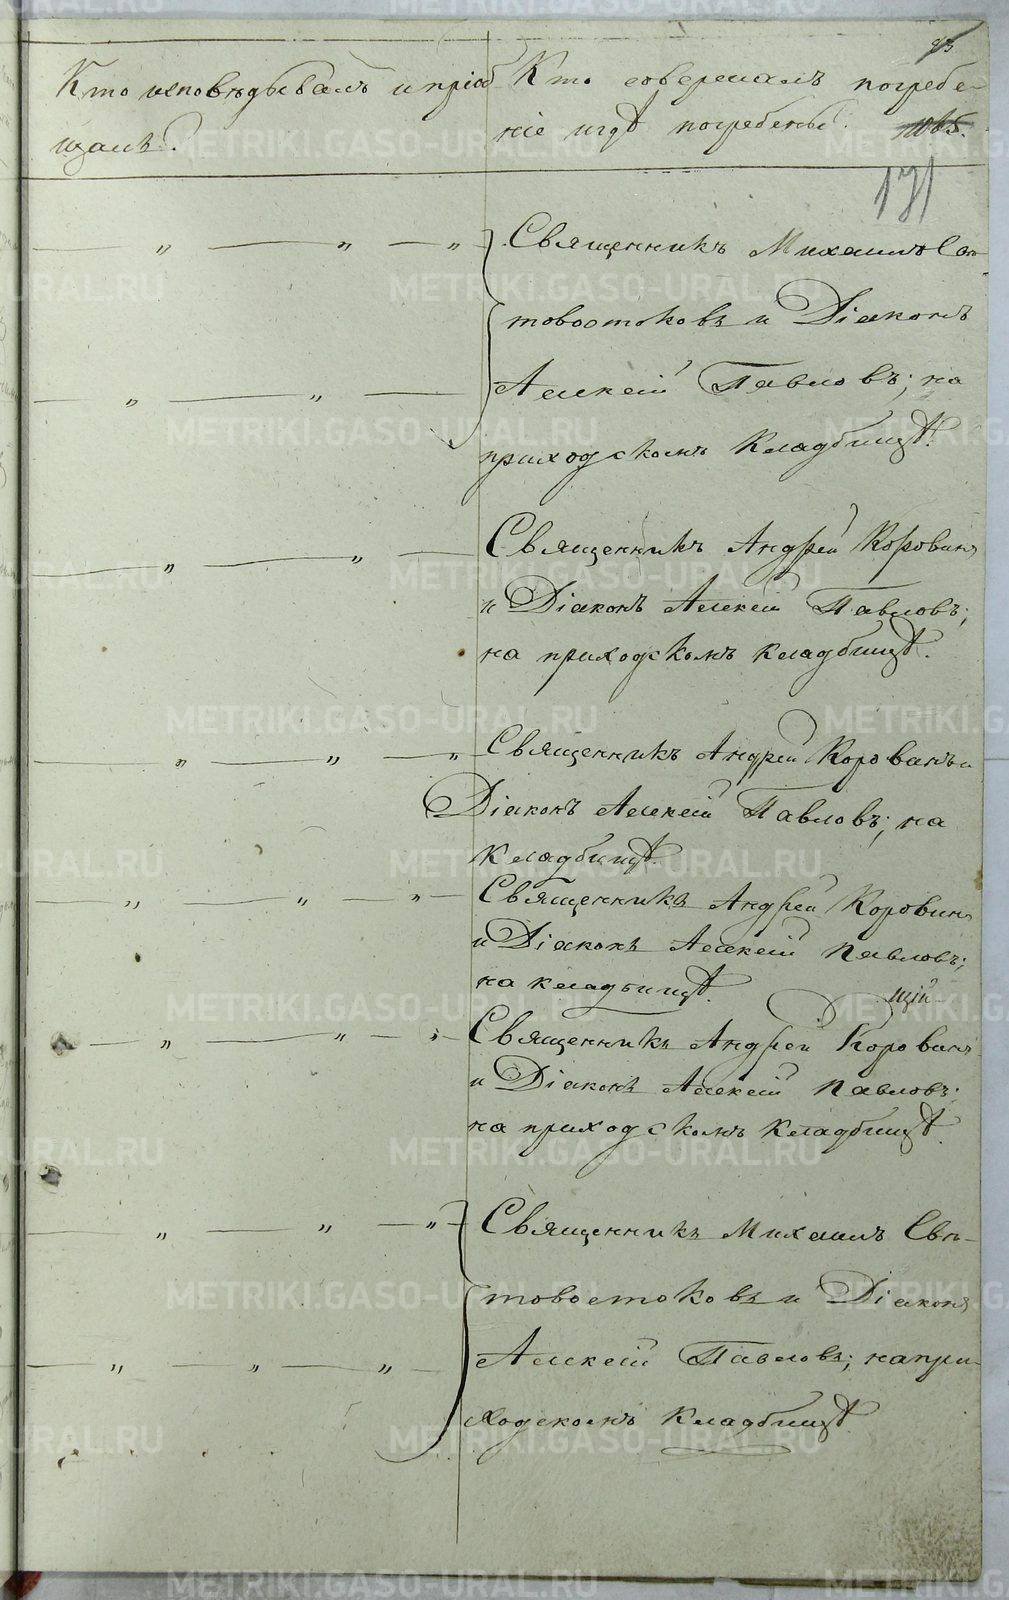 Кто исповѣдывалъ и пріоб
щалъ?
Кто совершалъ погребе-
ніе и гдѣ погребены.
171
Священникъ Михаилъ Свѣ-
товостоковъ и Діаконъ
Алексій Павловъ; на
приходскомъ кладбищѣ.
Священникъ Андрей Коровинъ
и Діаконъ Алексій Павловъ;
на приходскомъ кладбищѣ.
Священникъ Андрей Коровинъ и
Діаконъ Алексій Павловъ; на
кладбищѣ.
Священникъ Андрей Коровинъ
и Діаконъ Алексій Павловъ;
на кладбищѣ.
щій
Священникъ Андрей Коровинъ
и Діаконъ Алексій Павловъ;
на приходскомъ кладбищѣ.
Священникъ Михаилъ Свѣ-
товостоковъ и Діаконъ
Алексій Павловъ; на при-
ходскомъ кладбищѣ.
METRIKI.GASO-URAL.RU